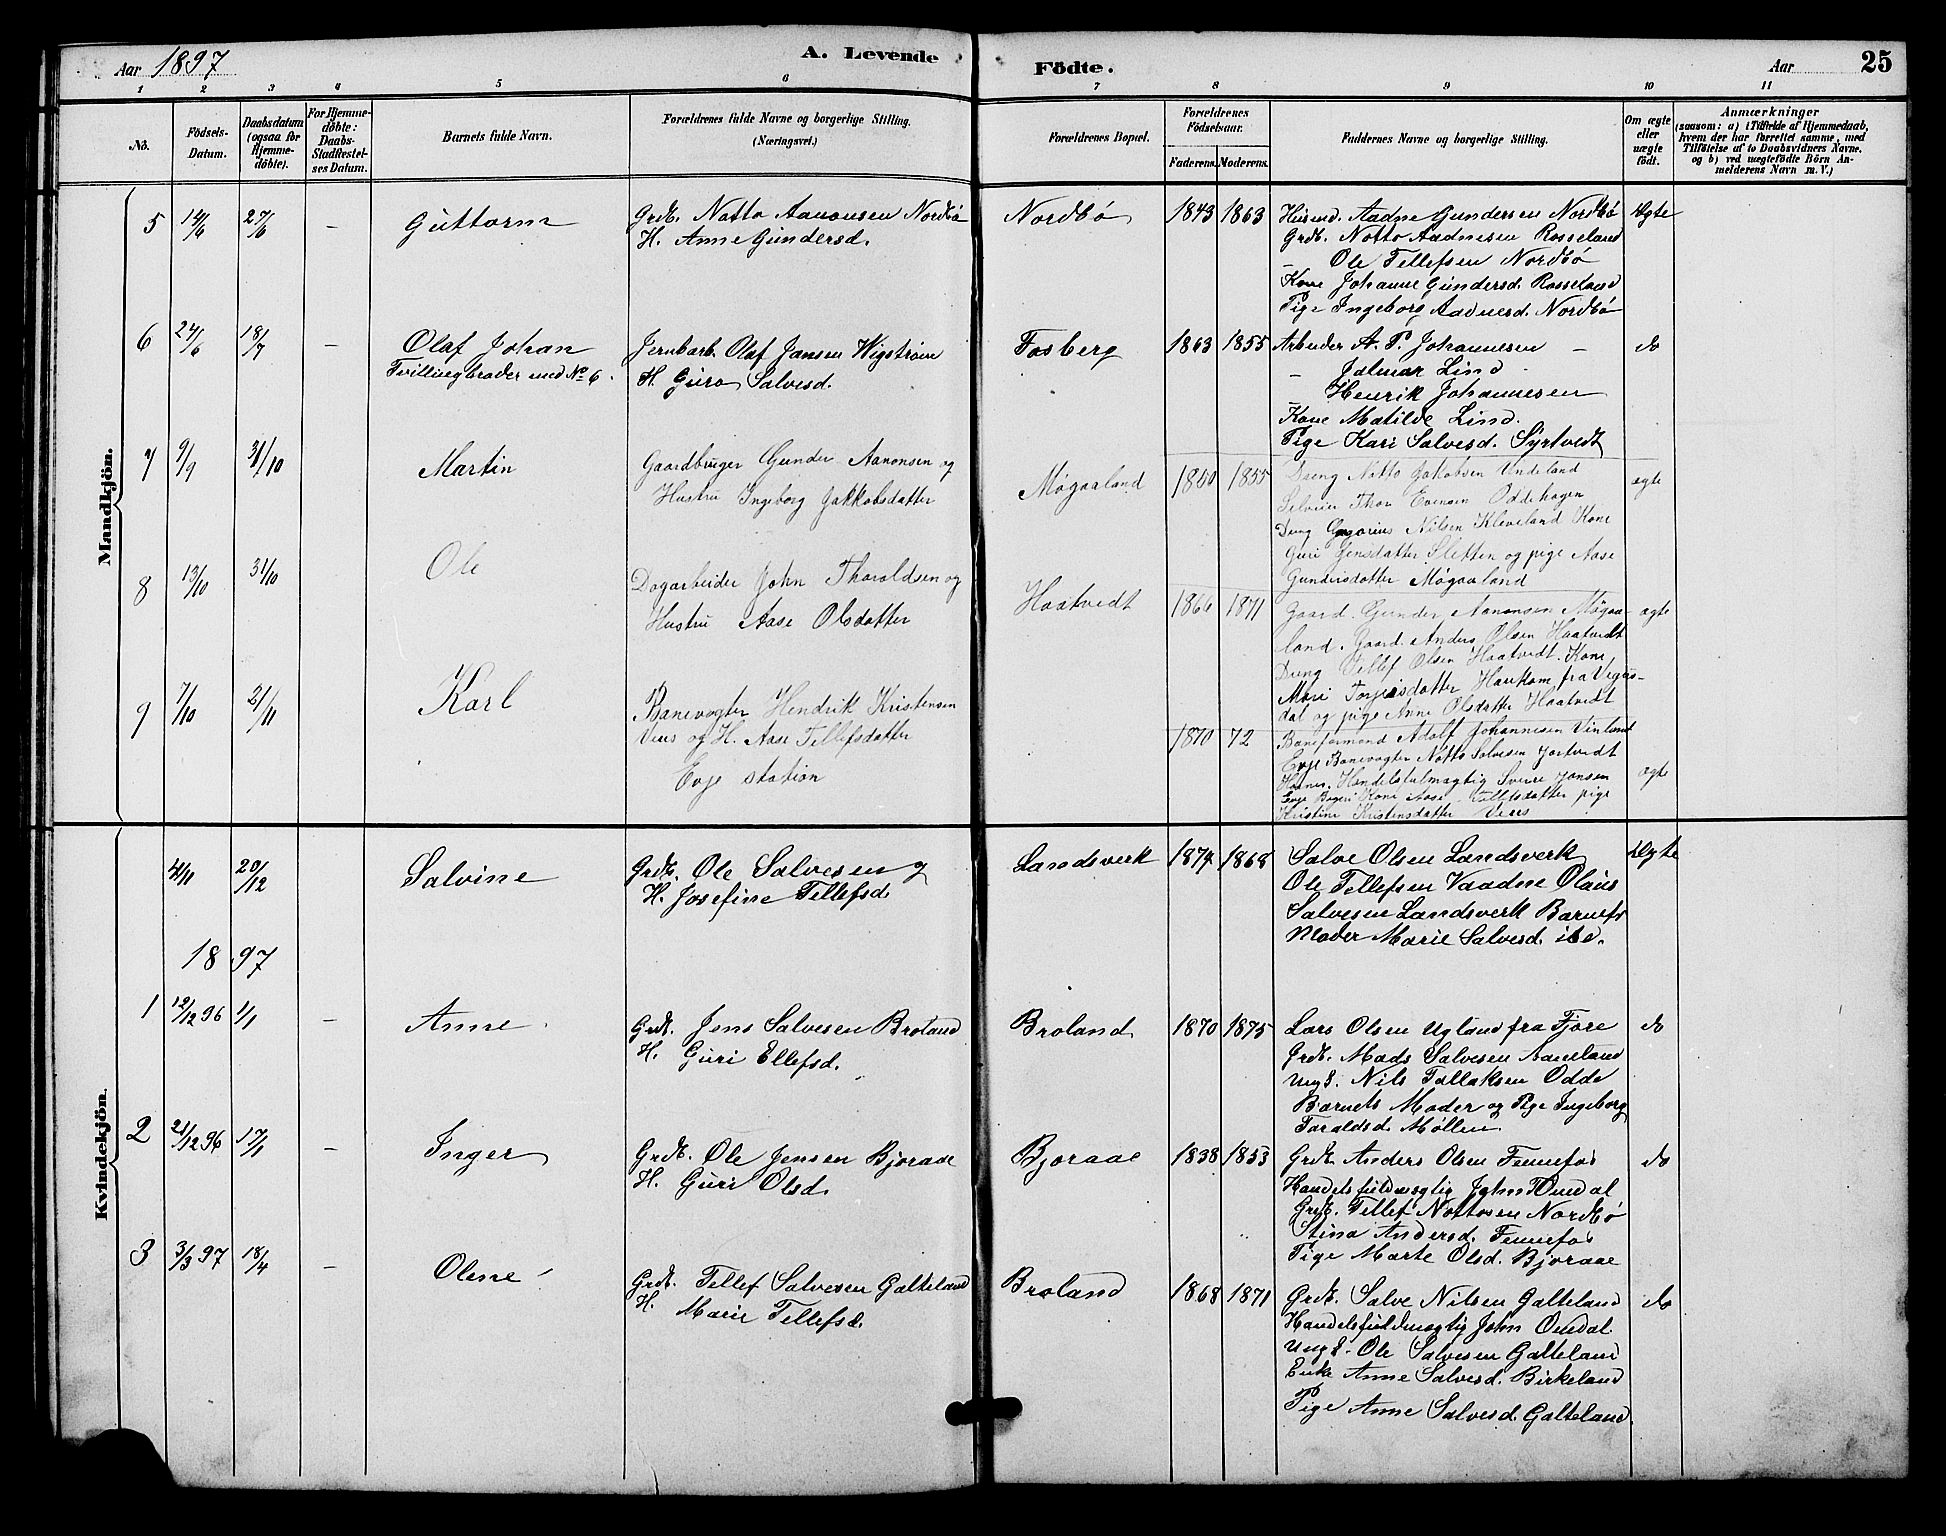 Aar 1897
A. Levende
Födte.
Aar
25
1 2 3 4 5 6 7 8 9 10 11
No.
Födsels-Datum.
Daabsdatum (ogsaa for Hjemmedöbte).
For Hjemmedöbte: Daabs-Stadfestelses Datum.
Barnets fulde Navn.
Forældrenes fulde Navne og borgerlige Stilling. (Næringsvei.)
Forældrenes Bopæl.
Forældrenes Födselsaar.
Faderens. Moderens.
Faddernes Navne og borgerlige Stilling.
Om ægte eller uægte födt.
Anmærkninger
(saasom: a) i Tilfælde af Hjemmedaab,
hvem der har forrettet samme, med
Tilföielse af to Daabsvidners Navne,
og b) ved uægtefödte Börn An-
melderens Navn m. V.)
Mandkjön.
5 14/6 27/6 – Guttorm
Grdb. Notto Aanonsen Nordbö
H. Anne Gundersd.
Nordbö 1843 1863
Husmd. Aadne Gundersen Nordbö
Grdb. Notto Aadnesen Rosseland
– Ole Tellefsen Nordbö
Kone Johanne Gundersd. Rosseland
Pige Ingeborg Aadnesd. Nordbö
Ægte
6 24/6 18/7 – Olaf Johan
Tvillingbroder med No 6.
Jernbarb. Olaf Jansen Wigström
H. Guro Salvesd.
Fosberg 1863 1855
Arbeider A. P. Johannesen –
– Jalmar Lind
Henrik Johannesen
Kone Matilde Lind.
Pige Kari Salvesd. Syrtvedt
do
7 9/9 31/10 Martin
Gaardbruger Gunder Aanonsen og
Hustru Ingeborg Jakkobsdatter
Møgaaland 1850 1855
Dreng Notto Jakobsen Undeland
Thor Evensen Oddehagen
Nilsen Kleveland Kone
Guri Jensdatter Sletten og pige Aase
Gundersdatter Møgaaland
ægte
8 13/10 31/10 Ole
Dagarbeider John Tharaldsen og
Hustru Aase Olsdatter
Haatvedt 1866 1871
Gaard. Gunder Aanonsen Møgaa-
land. Gaard. Anders Olsen Haatvedt
Dreng Tellef Olsen Haatvedt. Kone
Mari Torjersdatter Haukom fra Vegus-
dal og pige Anne Olsdatter Haatvedt
ægte
9 7/10 21/11 Karl
Banevogter Hendrik Kristensen
Veus og H. Aase Tellefsdatter
Evje station
1870 72
Baneformand Adolf Johannesen Vinland
Evje Banevogter Notto Salvesen
Hornes. Handelsfulmagtig Sverre Jonsen
Evje Kone Aase Tellefsdatter pige
Kristine Kristensdatter Veus
ægte
Kvindekjön.
4/11 20/12 Salvine
Grdb. Ole Salvesen og
H. Josefine Tellefsd.
Landsverk 1874 1868
Salve Olsen Landsverk
Ole Tellefsen Vaadne Olaus
Salvesen Landsverk Barnets
Moder Marie Salvesd. ibd.
Ægte
1897
1 12/12 96 1/1 – Anne
Grdb. Jens Salvesen Broland
H. Guri Ellefsd.
Broland 1870 1875
Lars Olsen Ugland fra Fjære
Grdb. Mads Salvesen Aaneland
Ungk. Nils Tallaksen Odde
Barnets Moder og Pige Ingeborg
Taraldsd. Møllen.
do
2 21/12 96 17/1 – Inger
Grdb. Ole Jensen Bjoraae
H. Guri Olsd.
Bjoraae 1838 1853
Grdb. Anders Olsen Fennefos
Handelsfuldmægtig John Omdal
Grdb. Tellef Nottosen Nordbø
Stina Andersd. Fennefos
Pige Marte Olsd. Bjoraae
do
3 3/3 97 18/4 – Olene
Grdb. Tellef Salvesen Galteland
H. Marie Tellefsd.
Broland 1868 1871
Grdb. Salve Nilsen Galteland
Handelsfuldmægtig John Omdal.
Ungk. Ole Salvesen Galteland
Enke Anne Salvesd. Birkeland
Pige Anne Salvesd. Galteland.
do